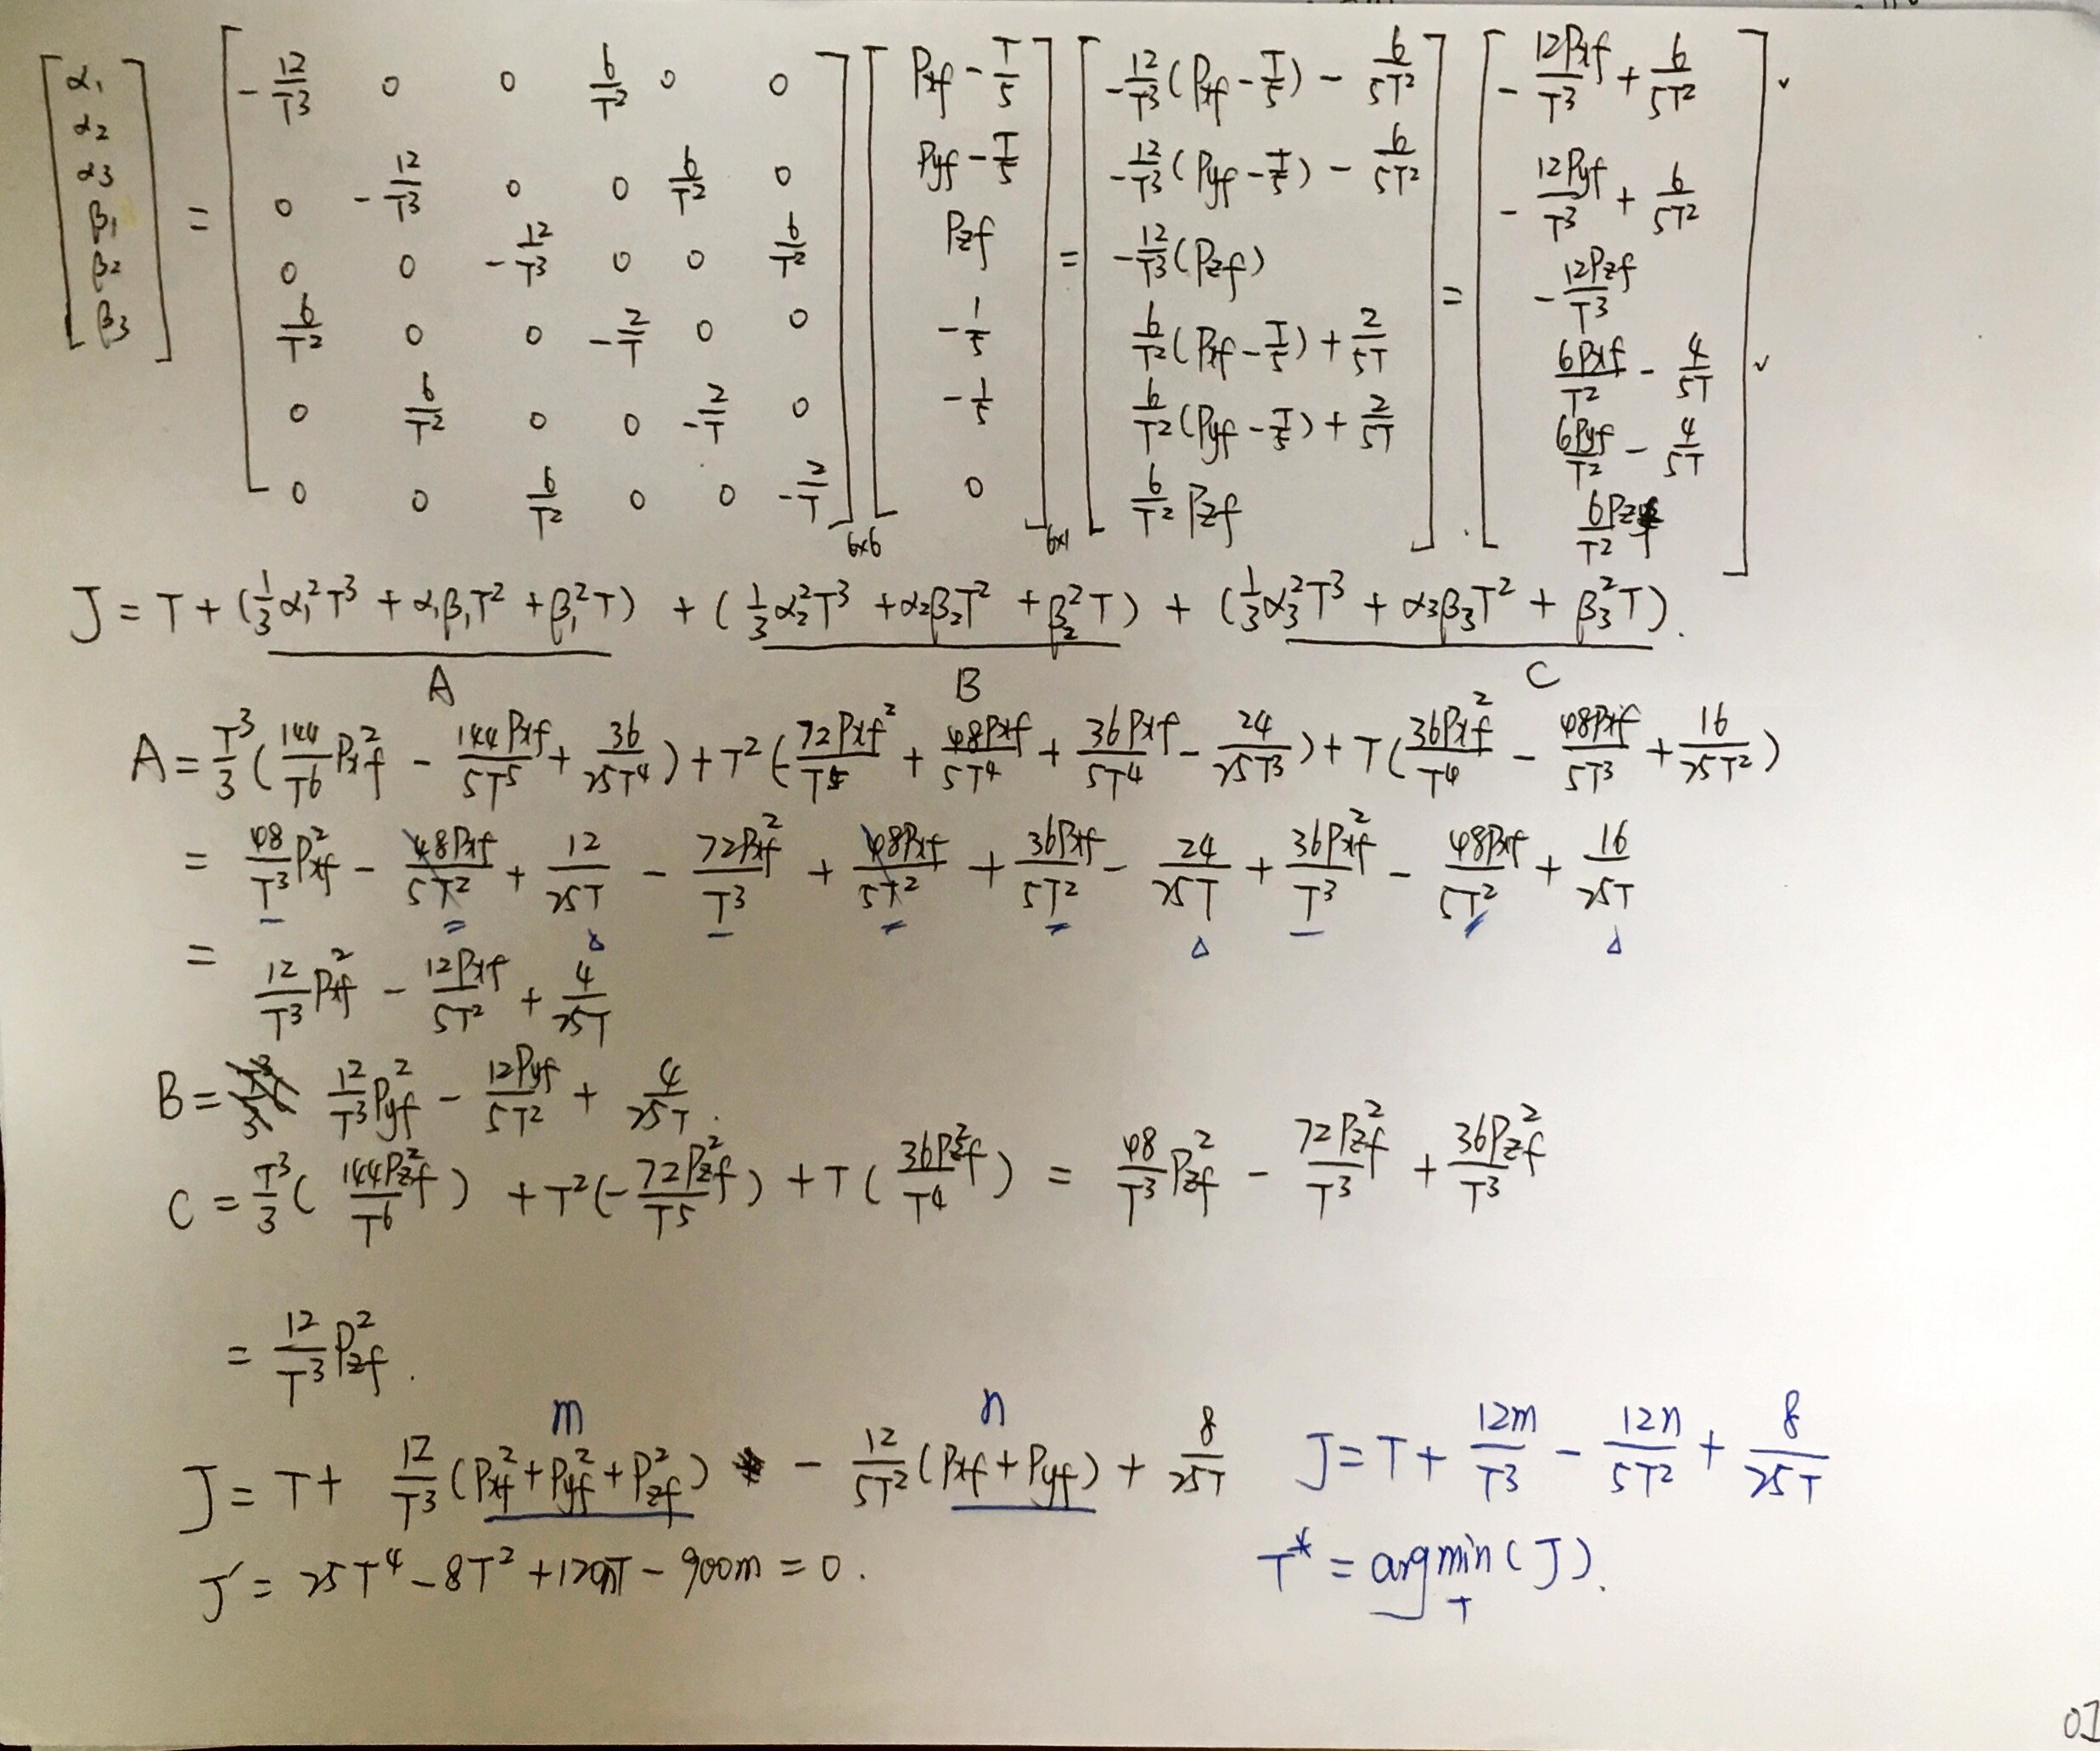 [α₁; α₂; α₃; β₁; β₂; β₃] = [-12/T³ 0 0 6/T² 0 0; 0 -12/T³ 0 0 6/T² 0; 0 0 -12/T³ 0 0 6/T²; 6/T² 0 0 -2/T 0 0; 0 6/T² 0 0 -2/T 0; 0 0 6/T² 0 0 -2/T]6×6 [Pxf - T/5; Pyf - T/5; Pzf; -1/5; -1/5; 0]6×1 = [-12/T³(Pxf - T/5) - 6/5T²; -12/T³(Pyf - T/5) - 6/5T²; -12/T³(Pzf); 6/T²(Pxf - T/5) + 2/5T; 6/T²(Pyf - T/5) + 2/5T; 6/T² Pzf] = [-12Pxf/T³ + 6/5T²; -12Pyf/T³ + 6/5T²; -12Pzf/T³; 6Pxf/T² - 4/5T; 6Pyf/T² - 4/5T; 6Pzf/T²]
J = T + (1/3 α₁²T³ + α₁β₁T² + β₁²T) + (1/3 α₂²T³ + α₂β₂T² + β₂²T) + (1/3 α₃²T³ + α₃β₃T² + β₃²T).
A B C
A = T³/3 (144/T⁶ Pxf² - 144Pxf/5T⁵ + 36/25T⁴) + T²(-72Pxf²/T⁵ + 48Pxf/5T⁴ + 36Pxf/5T⁴ - 24/25T³) + T(36Pxf²/T⁴ - 48Pxf/5T³ + 16/25T²)
= 48/T³ Pxf² - 48Pxf/5T² + 12/25T - 72Pxf²/T³ + 48Pxf/5T² + 36Pxf/5T² - 24/25T + 36Pxf²/T³ - 48Pxf/5T² + 16/25T
= 12/T³ Pxf² - 12Pxf/5T² + 4/25T
B = 12/T³ Pyf² - 12Pyf/5T² + 4/25T.
C = T³/3 (144Pzf²/T⁶) + T²(-72Pzf²/T⁵) + T(36Pzf²/T⁴) = 48/T³ Pzf² - 72Pzf²/T³ + 36Pzf²/T³
= 12/T³ Pzf².
m n
J = T + 12/T³ (Pxf² + Pyf² + Pzf²) - 12/5T² (Pxf + Pyf) + 8/25T J = T + 12m/T³ - 12n/5T² + 8/25T
J' = 25T⁴ - 8T² + 120nT - 900m = 0. T* = argmin(J).
T